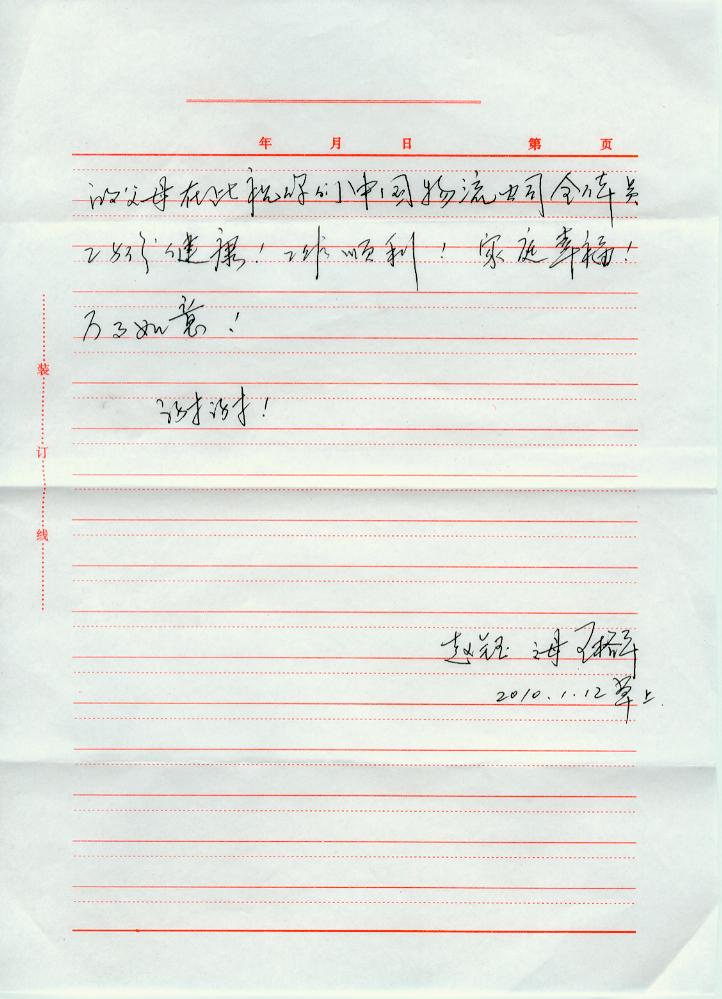 年 月 日 第 页
的父母在此祝你们中国物流公司全体员
工身体健康！工作顺利！家庭幸福！
万事如意！
谢谢！
赵钰 之母 王
2010.1.12 草上
装
订
线